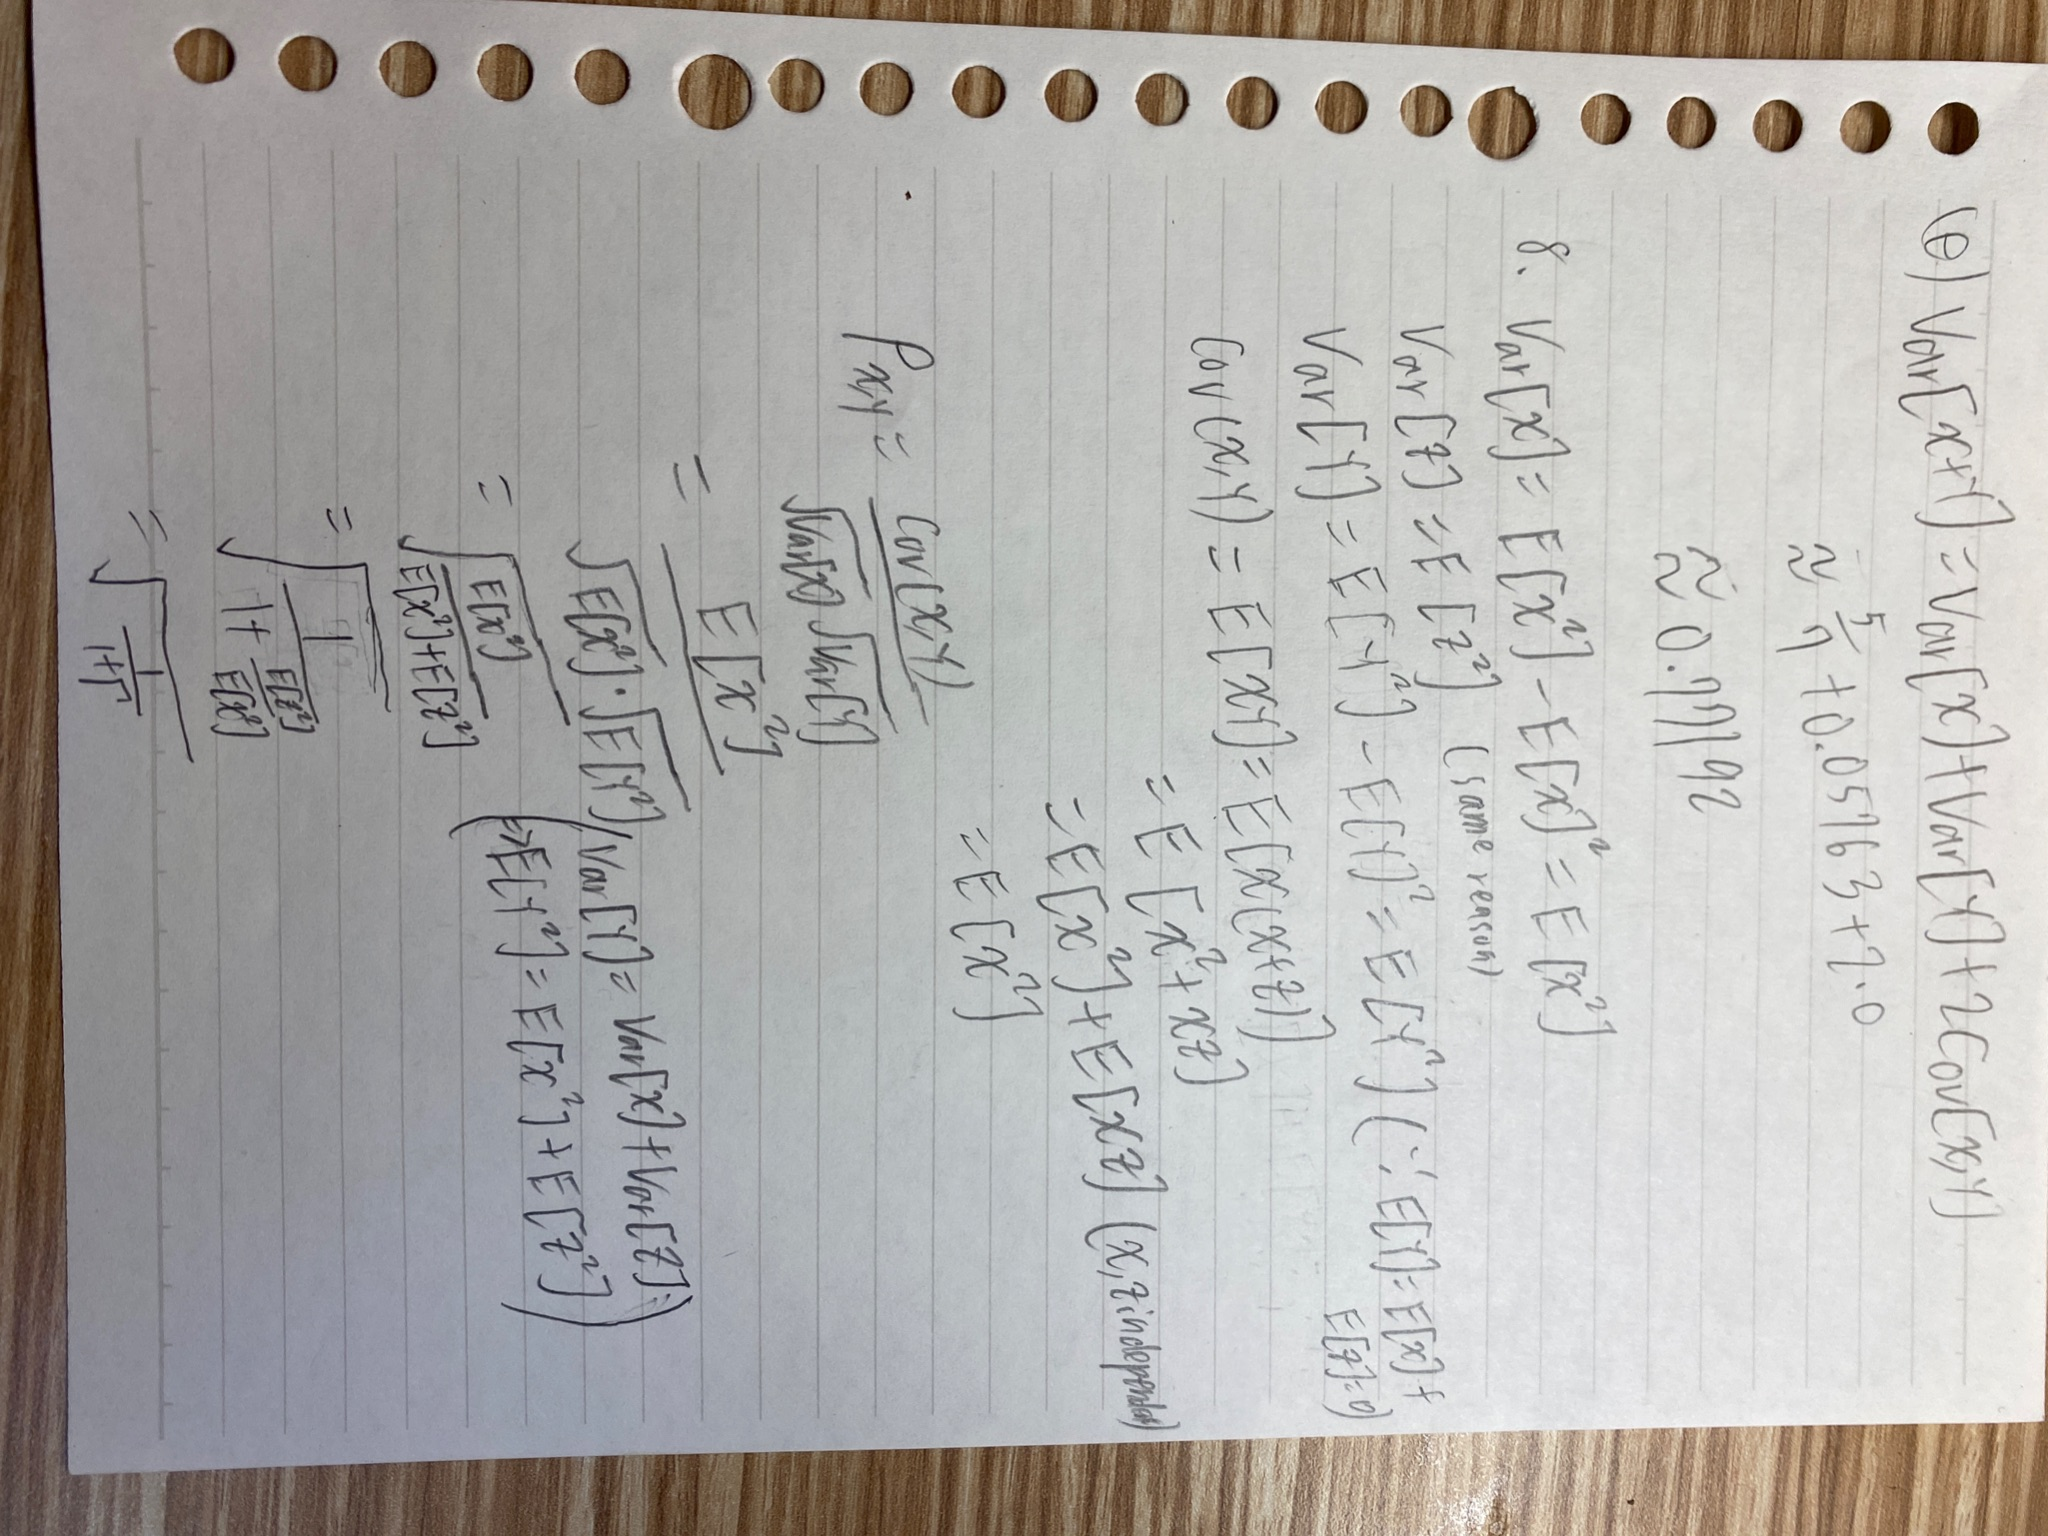 (e) Var[X+Y] = Var[X] + Var[Y] + 2Cov[X,Y]
≈ 5/9 + 0.059163 + 2·0
8. Var[X] = E[X²] - E[X]² = E[X²]
Var[Z] = E[Z²] (same reason)
Var[Y] = E[Y²] - E[Y]² = E[Y²] (∵ E[Y] = E[X] + E[Z] = 0)
Cov(X,Y) = E[XY] = E[X(X+Z)]
= E[X² + XZ]
= E[X²] + E[XZ] (X,Z: independent)
= E[X²]
ρXY = Cov(X,Y) / √Var[X] √Var[Y]
= E[X²] / √E[X²] · √E[Y²] (Var[Y] = Var[X] + Var[Z];
= √E[X²] / E[X²] + E[Z²] ⇒ E[Y²] = E[X²] + E[Z²])
= √1 / 1 + E[Z²] / E[X²]
= √1 / 1+r